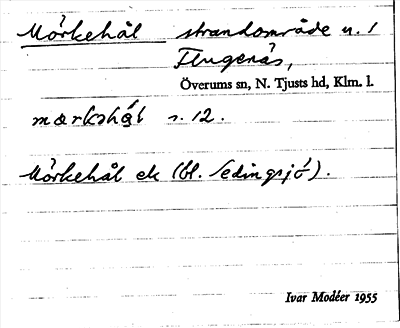 Mörkehål strandområde n. 1
Flugenäs,
Överums sn, N. Tjusts hd, Klm. l.
mœrkəhǻl s. 12.
Mörkehål ek (bl. Ledingsjö).
Ivar Modéer 1955